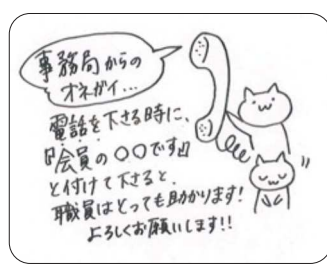 事務局からの
オネガイ…
電話を下さる時に、
『会員の○○です』
と付けて下さると、
職員はとっても助かります!
よろしくお願いします!!